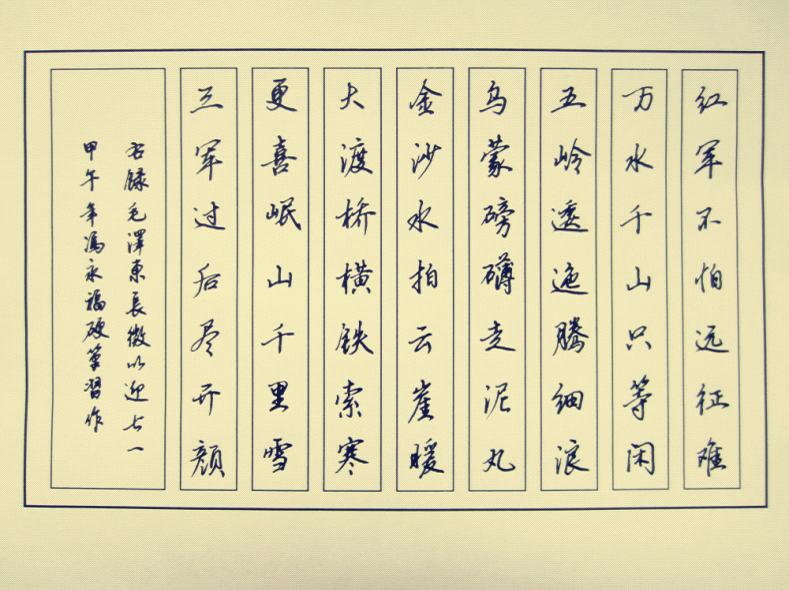 红军不怕远征难
万水千山只等闲
五岭逶迤腾细浪
乌蒙磅礴走泥丸
金沙水拍云崖暖
大渡桥横铁索寒
更喜岷山千里雪
三军过后尽开颜
右録毛澤東長徵以迎七一
甲午年馮永福硬筆習作